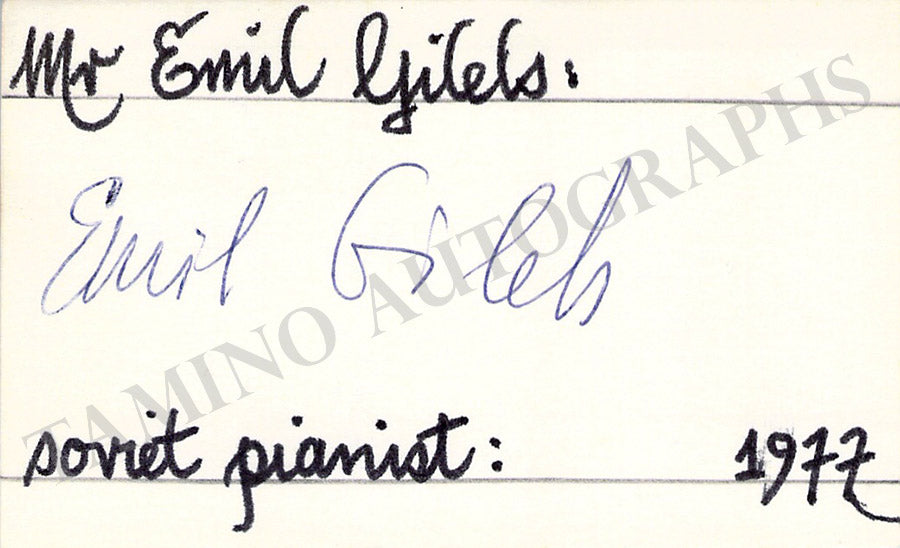 Mr Emil Gilels:
Emil Gilels
TAMINO AUTOGRAPHS
soviet pianist: 1977